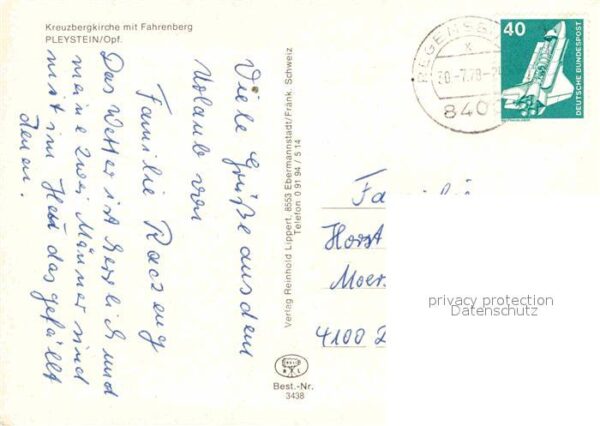 Kreuzbergkirche mit Fahrenberg
PLEYSTEIN/Opf.
Viele Grüße aus dem
Urlaub von
Familie
Das Wetter ist herrlich und
meine zwei Männer sind
mit im Heu das gefällt
denen.
Verlag Reinhold Lippert, 8553 Ebermannstadt/Fränk. Schweiz
Telefon 0 91 94 / 5 14
R L
Best.-Nr.
3438
REGENSB
-7.78-
840
40
DEUTSCHE BUNDESPOST
Fa
Horst
Moer.
4100
privacy protection
Datenschutz